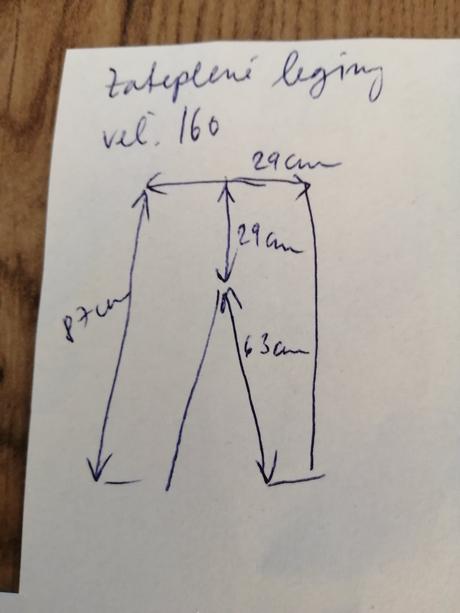 Zateplené legíny
vel. 160
29cm
29cm
87cm
63cm